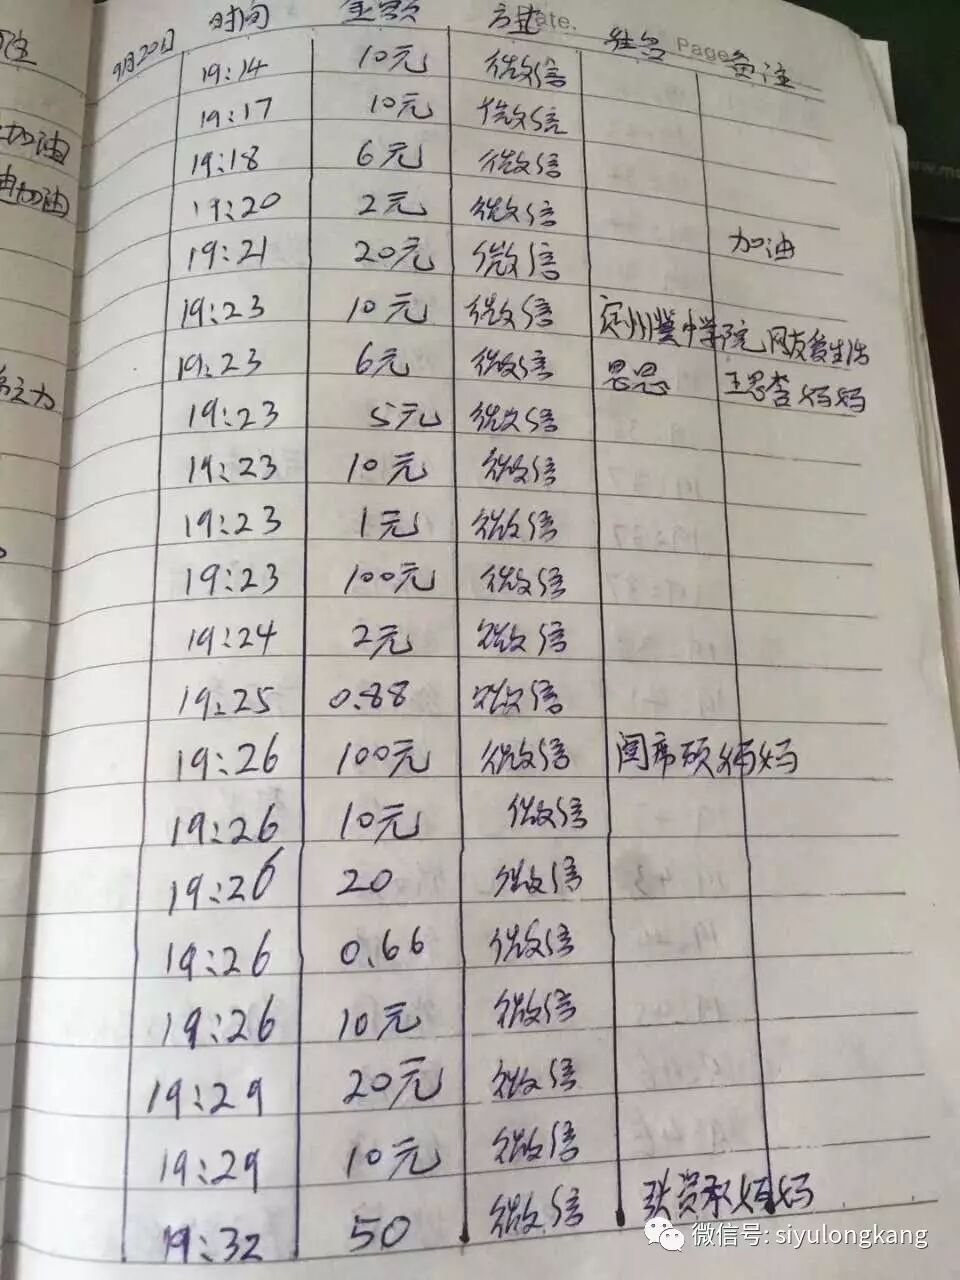 时间 金额 方式 Date. 姓名 Page 备注
9月20日
19:14 10元 微信
19:17 10元 微信
19:18 6元 微信
19:20 2元 微信
19:21 20元 微信 加油
19:23 10元 微信 定州冀中学院,网友爱生活
19:23 6元 微信 思思 王思杏妈妈
19:23 5元 微信
19:23 10元 微信
19:23 1元 微信
19:23 100元 微信
19:24 2元 微信
19:25 0.88 微信
19:26 100元 微信 闫席硕妈妈
19:26 10元 微信
19:26 20 微信
19:26 0.66 微信
19:26 10元 微信
19:29 20元 微信
19:29 10元 微信
19:32 50 微信 张贤承妈妈
注
加油
加油
之力
微信号: siyulongkang